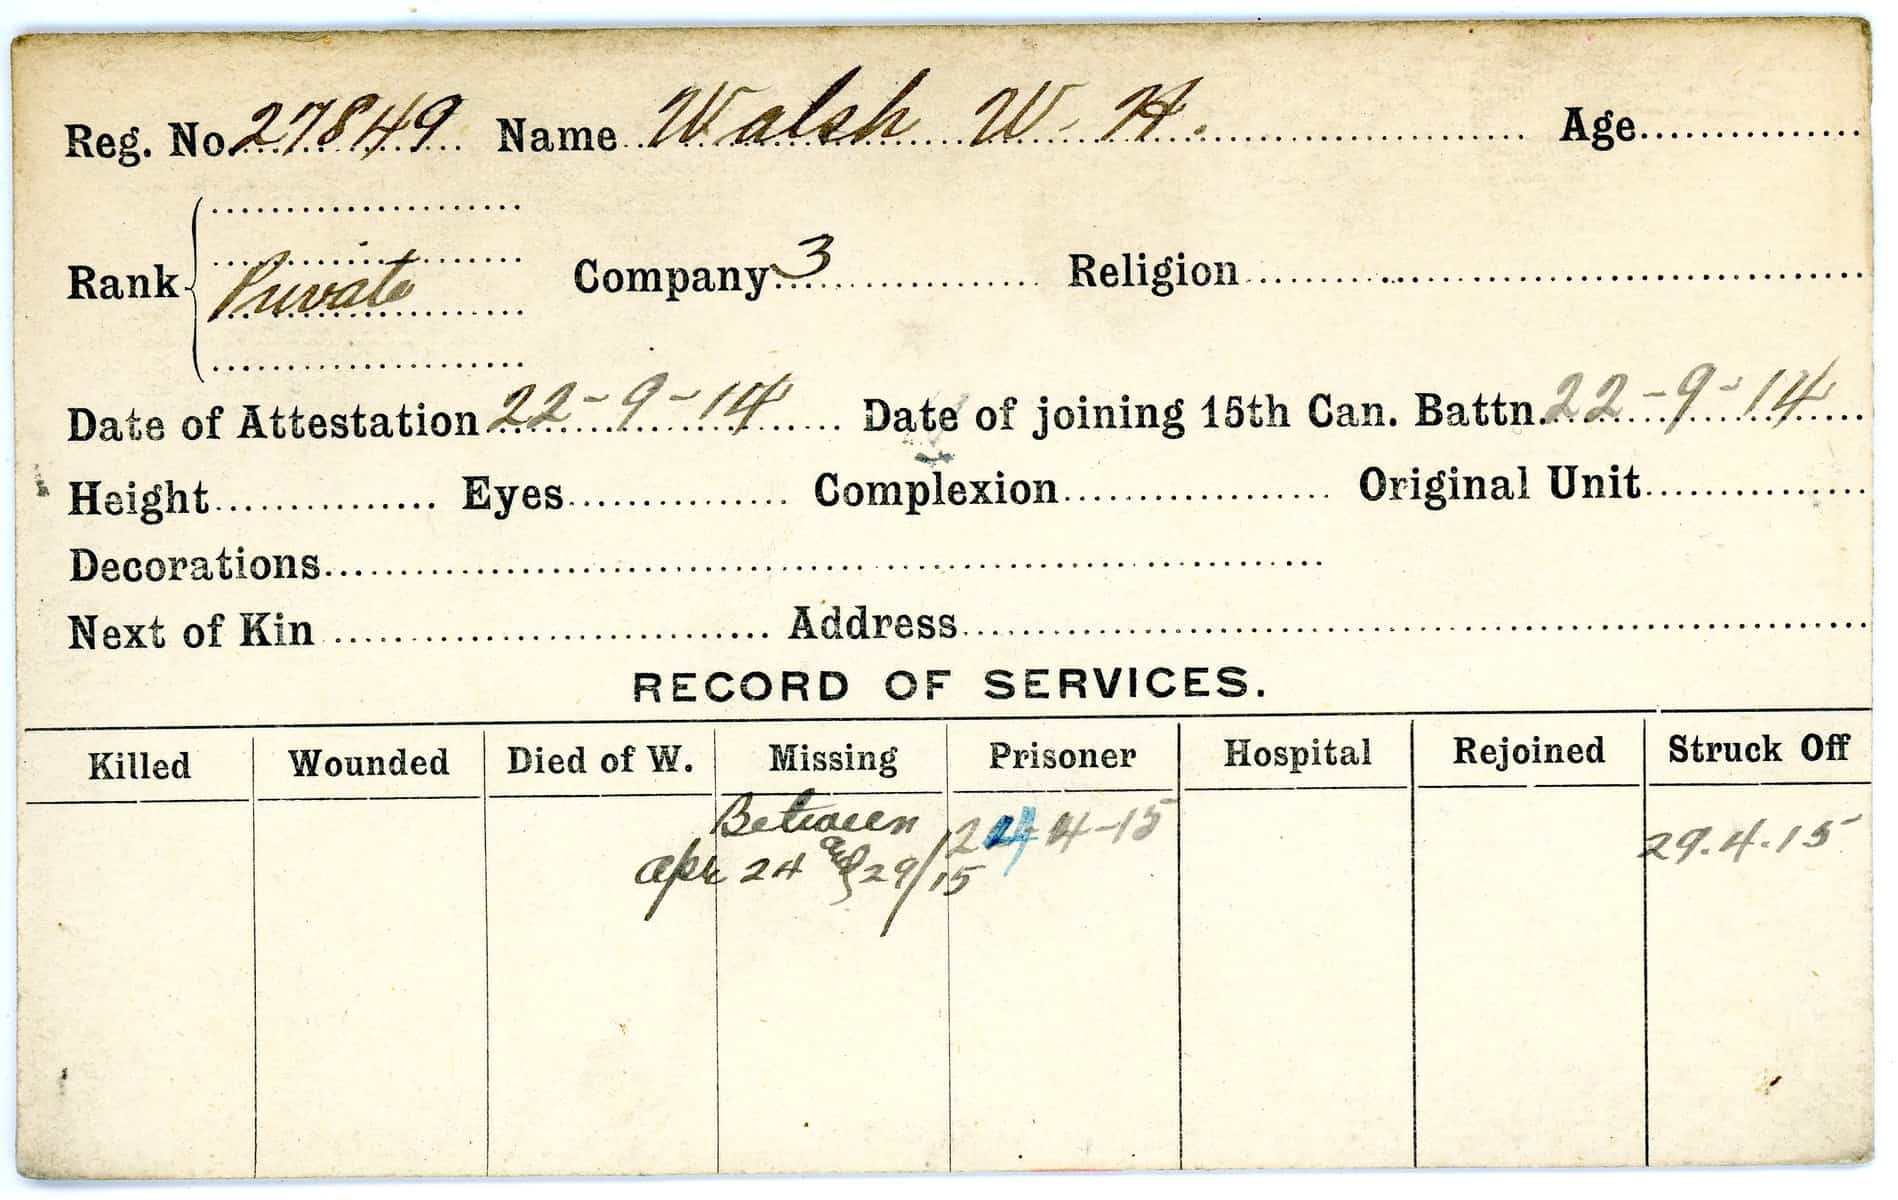 Reg. No. 27849 Name Walsh W. H. Age
Rank Private Company 3 Religion
Date of Attestation 22-9-14 Date of joining 15th Can. Battn. 22-9-14
Height Eyes Complexion Original Unit
Decorations
Next of Kin Address
RECORD OF SERVICES.
Killed Wounded Died of W. Missing Prisoner Hospital Rejoined Struck Off
Between 24-4-15 29.4.15
apr 24 and 29/15